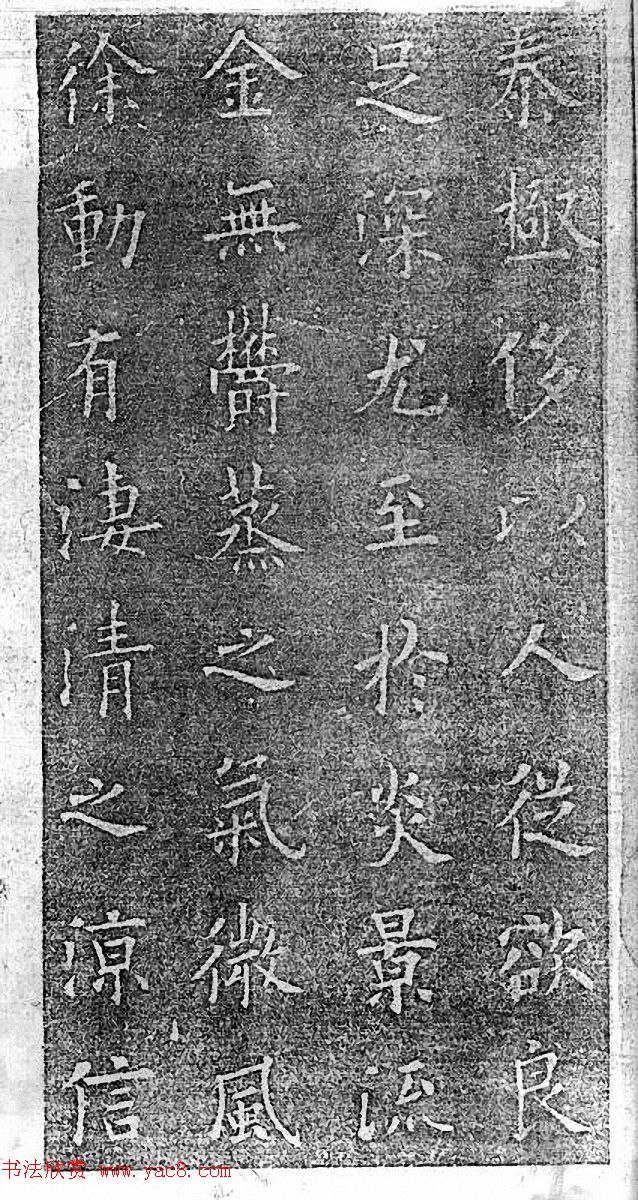 泰極侈以人從欲良
足深尤至於炎景流
金無欝蒸之氣微風
徐動有淒清之涼信
书法欣赏 www.yac8.com